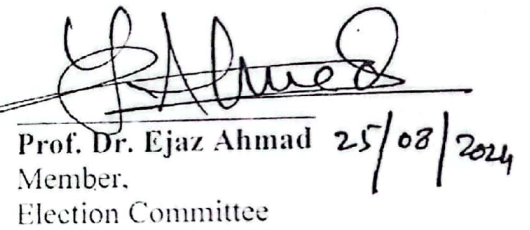 Prof. Dr. Ejaz Ahmad 25/08/2024
Member,
Election Committee